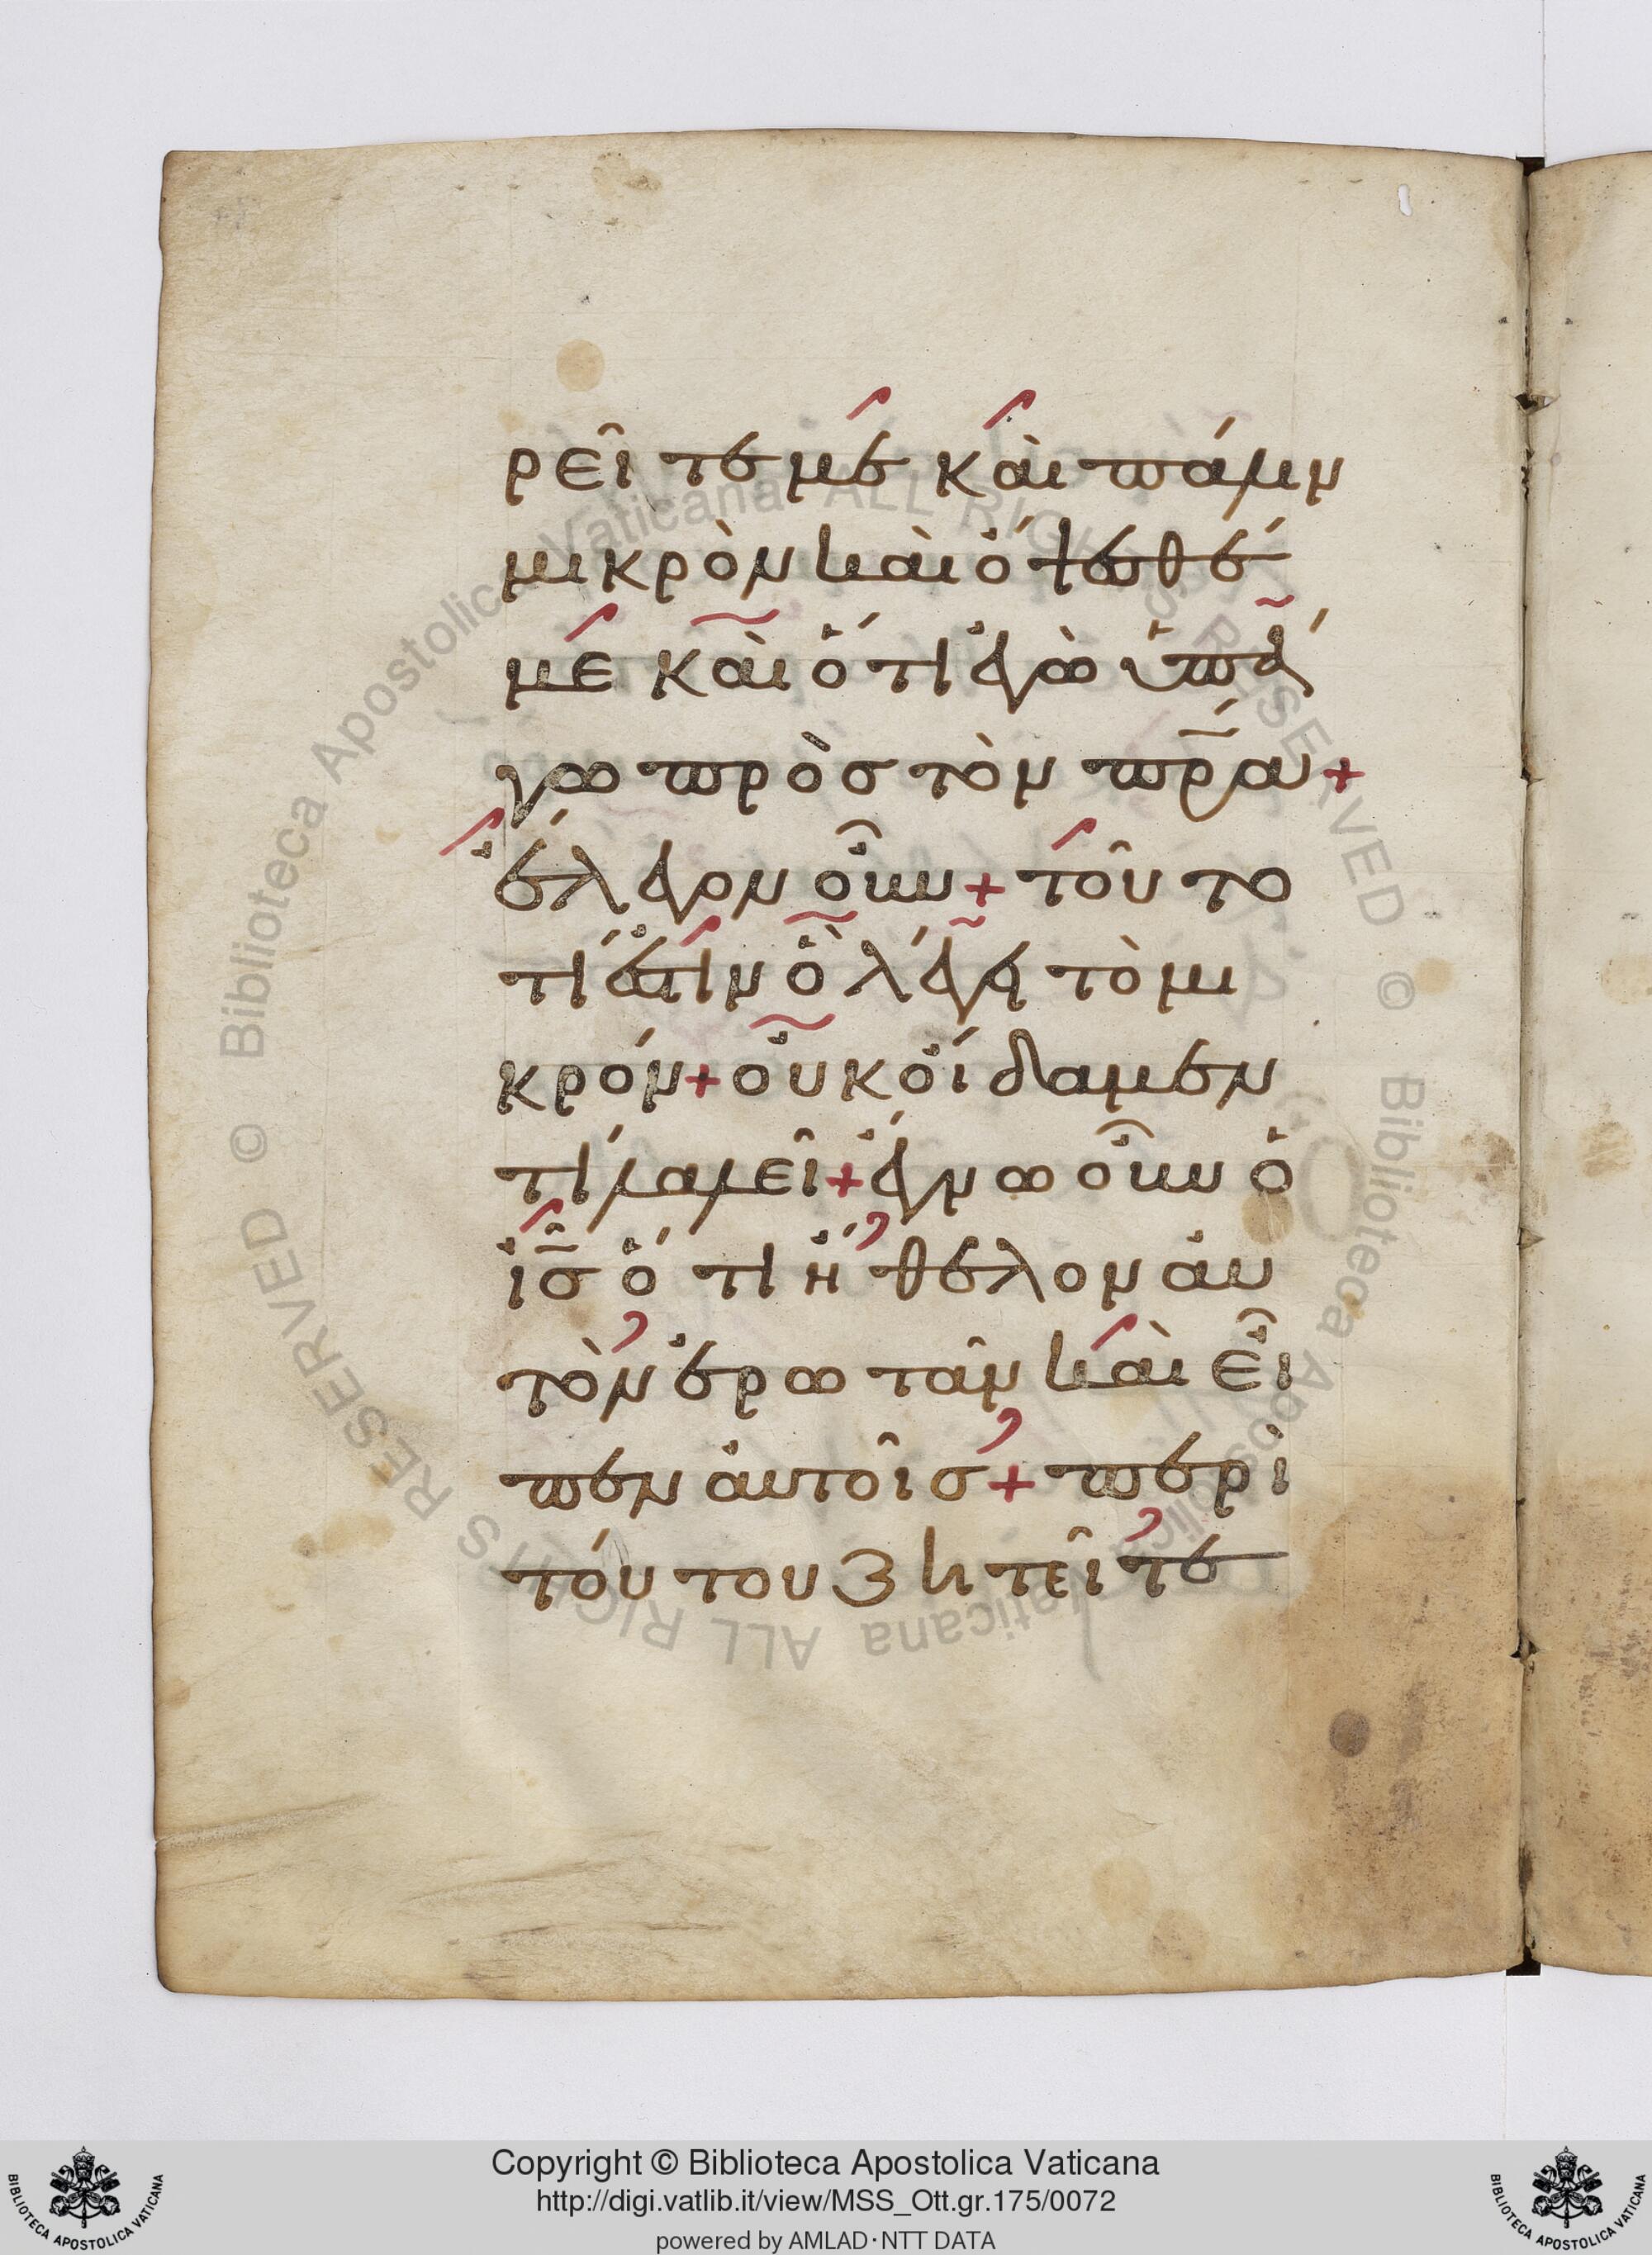 ρεῖτέ με καὶ πάλιν
μικρὸν καὶ ὄψεσθέ
με καὶ ὅτι ἐγὼ ὑπά
γω πρὸς τὸν πρ̅α +
ἔλεγον οὖν + τοῦτο
τί ἐστιν ὃ λέγει τὸ μι
κρόν + οὐκ οἴδαμεν
τί λαλεῖ + ἔγνω οὖν ὁ
ι̅ς̅ ὅτι ἤθελον αὐ
τὸν ἐρωτᾶν καὶ εἶ
πεν αὐτοῖς + περὶ
τούτου ζητεῖτε
Copyright © Biblioteca Apostolica Vaticana
http://digi.vatlib.it/view/MSS_Ott.gr.175/0072
powered by AMLAD·NTT DATA
BIBLIOTECA APOSTOLICA VATICANA
BIBLIOTECA APOSTOLICA VATICANA
© Biblioteca Apostolica Vaticana ALL RIGHTS RESERVED © Biblioteca Apostolica Vaticana ALL RIGHTS RESERVED